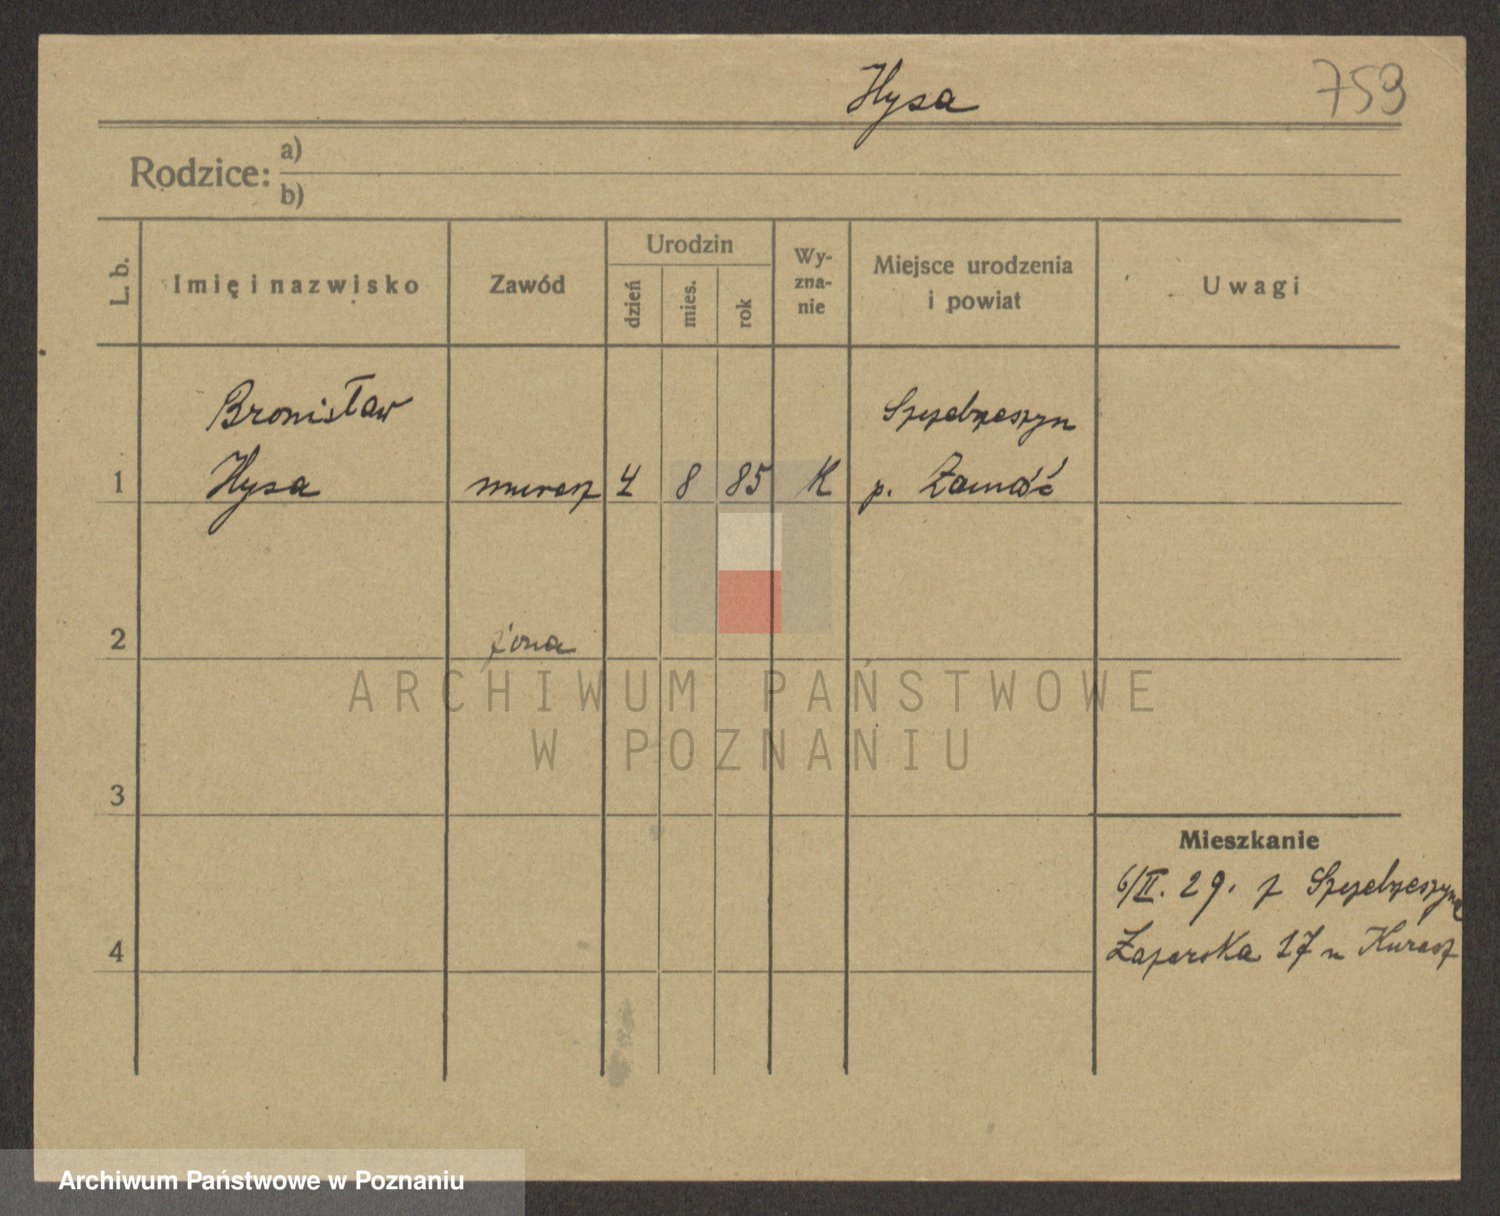 Hysa
759
Rodzice: a)
b)
L. b.
Imię i nazwisko
Zawód
Urodzin
dzień
mies.
rok
Wy-
zna-
nie
Miejsce urodzenia
i powiat
Uwagi
Bronisław
Szczebrzeszyn
1 Hysa murarz 4 8 85 K p. Zamość
2 żona
ARCHIWUM PAŃSTWOWE
W POZNANIU
3
Mieszkanie
6/II. 29. z Szczebrzeszyna
4
17 u
Archiwum Państwowe w Poznaniu